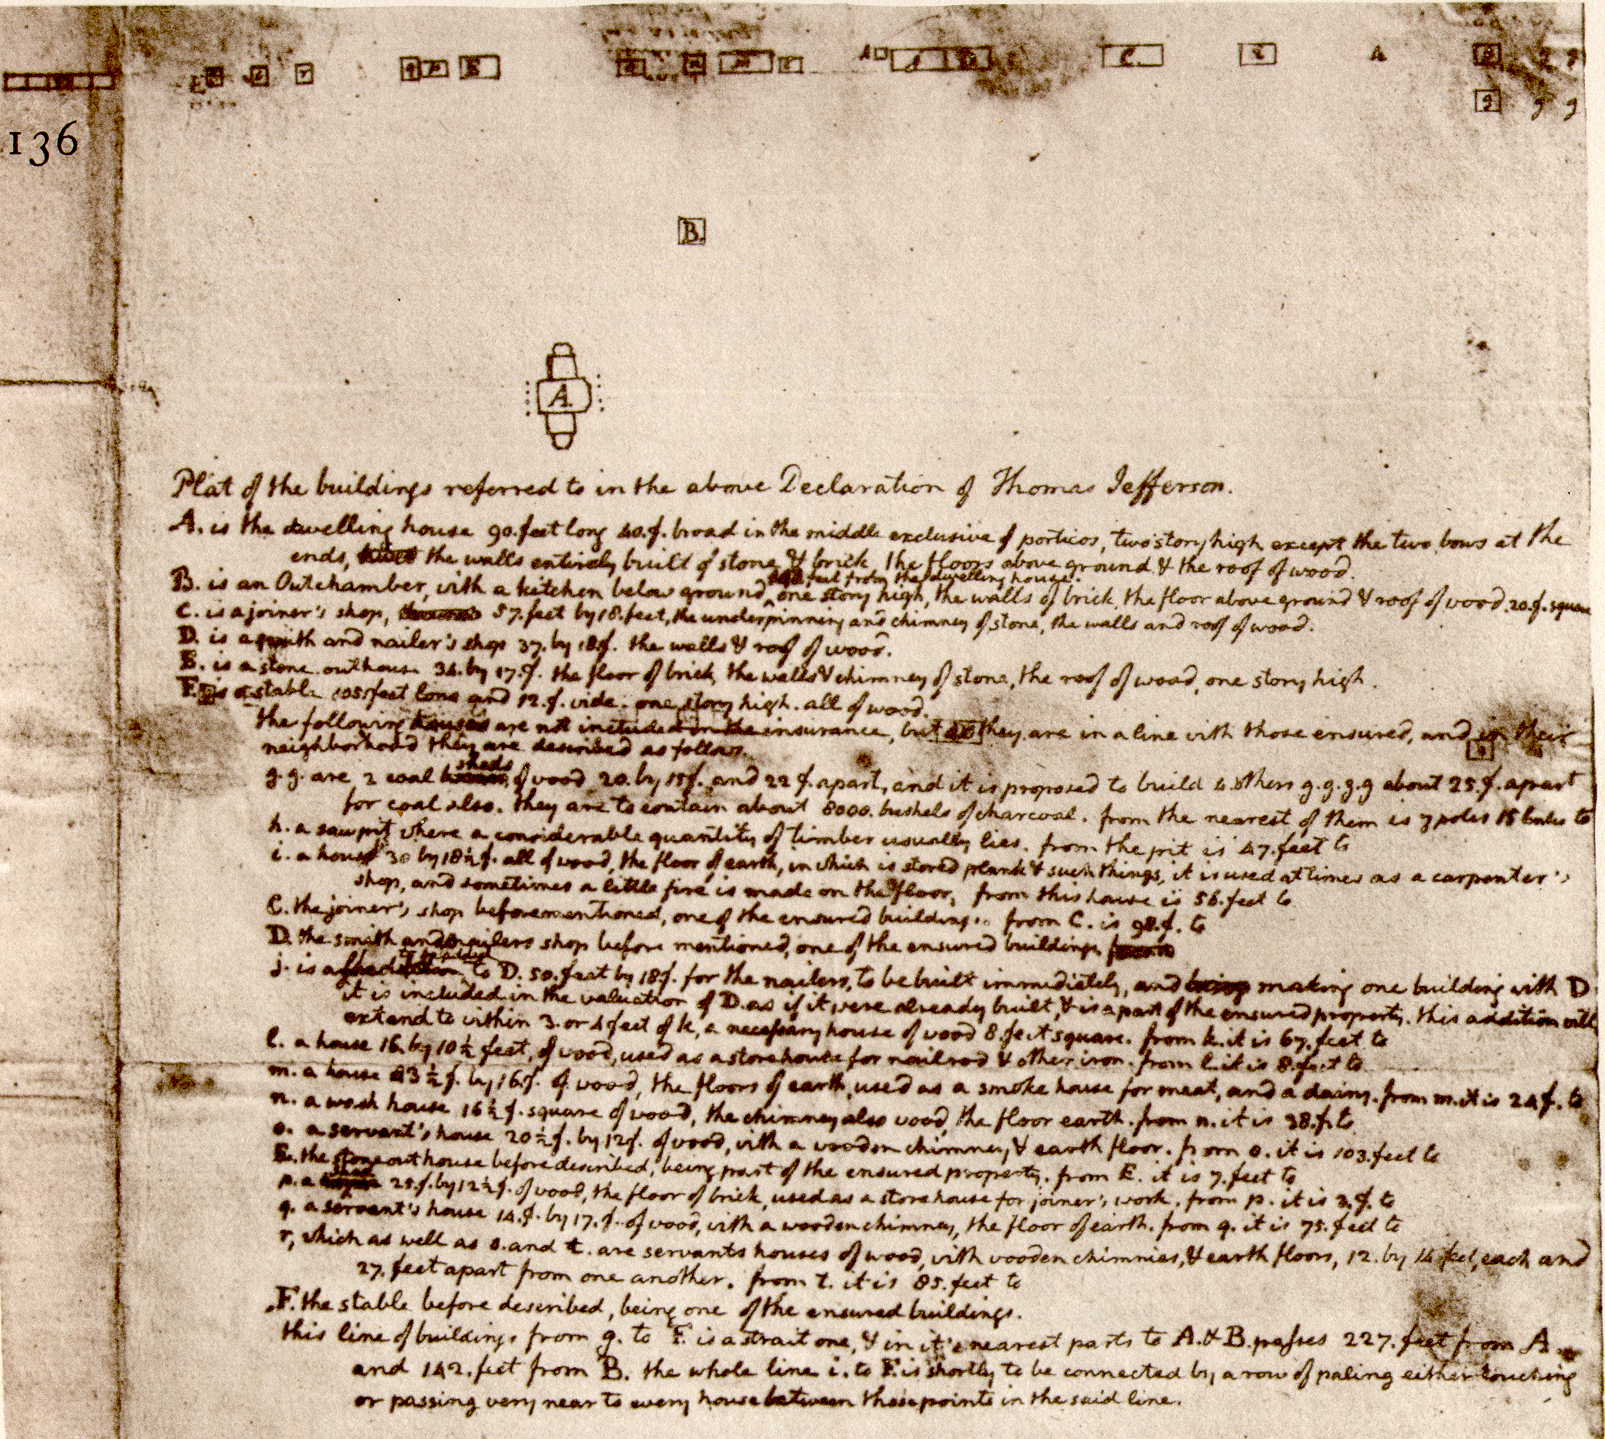 136
B.
A.
Plat of the buildings referred to in the above Declaration of Thomas Jefferson.
A. is the dwelling house 90. feet long 40. f. broad in the middle exclusive of porticos, two story high except the two bows at the
ends, the walls entirely built of stone & brick the floors above ground & the roof of wood.
feet from the dwelling house.
B. is an Outchamber, with a kitchen below ground, one story high, the walls of brick, the floor above ground & roof of wood. 20. f. square
C. is a joiner's shop, 57. feet by 18. feet, the underpinning and chimney of stone, the walls and roof of wood.
D. is a smith and nailer's shop 37. by 18 f. the walls & roof of wood.
E. is a stone outhouse 34. by 17. f. the floor of brick, the walls & chimney of stone, the roof of wood, one story high.
F. is a stable 105 feet long and 12. f. wide. one story high. all of wood.
the following houses are not included in the insurance, but as they are in a line with those ensured, and in their
neighborhood they are described as follows.
sheds
g. g. are 2 coal of wood 20. by 15 f. and 22 f. apart, and it is proposed to build 4. others g. g. g. g about 25. f. apart
for coal also. they are to contain about 8000. bushels of charcoal. from the nearest of them is 7 poles 15 links to
h. a sawpit where a considerable quantity of timber usually lies. from the pit is 47. feet to
i. a house 30 by 18½ f. all of wood, the floor of earth, in which is stored plank & such things, it is used at times as a carpenter's
shop, and sometimes a little fire is made on the floor, from this house is 56. feet to
C. the joiner's shop beforementioned, one of the ensured buildings. from C. is 98. f. to
D. the smith and nailers shop before mentioned, one of the ensured buildings
j. is a to D. 50. feet by 18 f. for the nailers, to be built immediately, and making one building with D
it is included in the valuation of D. as if it were already built, & is a part of the ensured property. this addition will
extend to within 3. or 4 feet of k, a necessary house of wood 8. feet square. from k. it is 67. feet to
l. a house 16. by 10½ feet, of wood, used as a storehouse for nailrod & other iron. from l. it is 8. feet to
m. a house 43½ f. by 16 f. of wood, the floors of earth, used as a smoke house for meat, and a dairy. from m. it is 24 f. to
n. a wash house 16½ f. square of wood, the chimney also wood, the floor earth. from n. it is 38. f. to
o. a servant's house 20½ f. by 12 f. of wood, with a wooden chimney, & earth floor. from o. it is 103. feet to
E. the stone outhouse before described, being part of the ensured property. from E. it is 7. feet to
p. a 25. f. by 12½ f. of wood, the floor of brick, used as a storehouse for joiner's work. from p. it is 3. f. to
q. a servant's house 14. f. by 17. f. of wood, with a wooden chimney, the floor of earth. from q. it is 75. feet to
r, which as well as s. and t. are servants houses of wood, with wooden chimnies, & earth floors, 12. by 14 feet, each and
27. feet apart from one another. from t. it is 85. feet to
F. the stable before described, being one of the ensured buildings.
this line of buildings from g. to F. is a strait one, & in it's nearest parts to A. & B. passes 227. feet from A.
and 142. feet from B. the whole line i. to F. is shortly to be connected by a row of paling either touching
or passing very near to every house between those points in the said line.